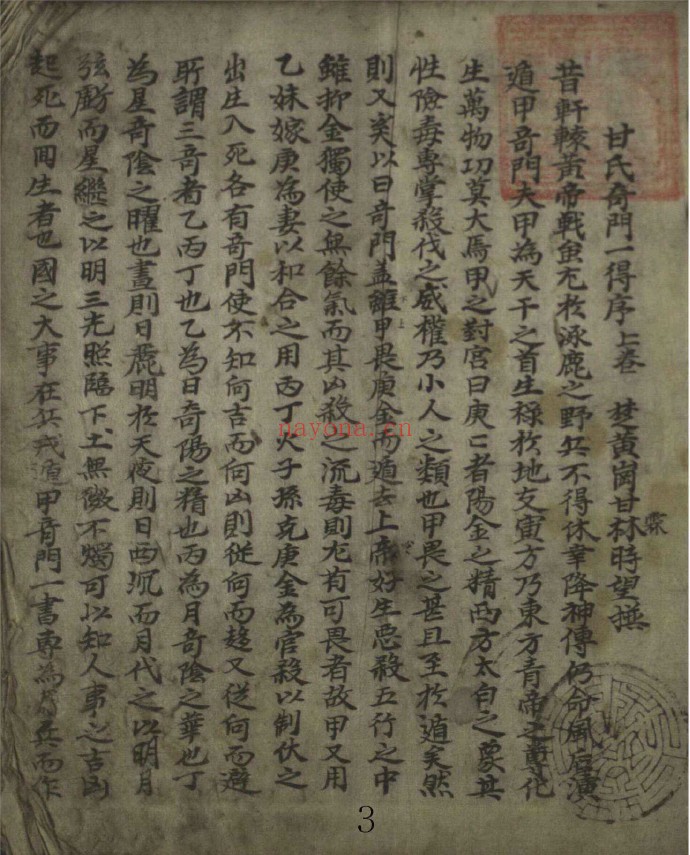 甘氏奇門一得序上卷 楚黃岡甘林時望撰
霖
昔軒轅黃帝戰蚩尤於涿鹿之野兵不得休幸降神傳仍命風后演
遁甲奇門夫甲為天干之首生祿於地支寅方乃東方青帝之尊化
生萬物功莫大焉甲之對宮曰庚〻者陽金之精西方太白之象其
性險毒專掌殺伐之威權乃小人之類也甲畏之甚且至於遁矣然
則又奚以曰奇門蓋雖甲畏庚金而遁去上帝好生惡殺五行之中
雖抑金獨使之無餘氣而其凶殺之流毒則尤有可畏者故甲又用
乙妹嫁庚為妻以和合之用丙丁火子孫克庚金為官殺以制伏之
出生入死各有奇門使不知何吉而何凶則從何而趨又從何而避
所謂三奇者乙丙丁也乙為日奇陽之精也丙為月奇陰之華也丁
為星奇陰之曜也晝則日麗明於天夜則日西沉而月代之以明月
弦虧而星繼之以明三光照臨下土無微不燭可以知人事之吉凶
起死而回生者也國之大事在兵戎遁甲奇門一書專為兵而作
nayona.cn
3